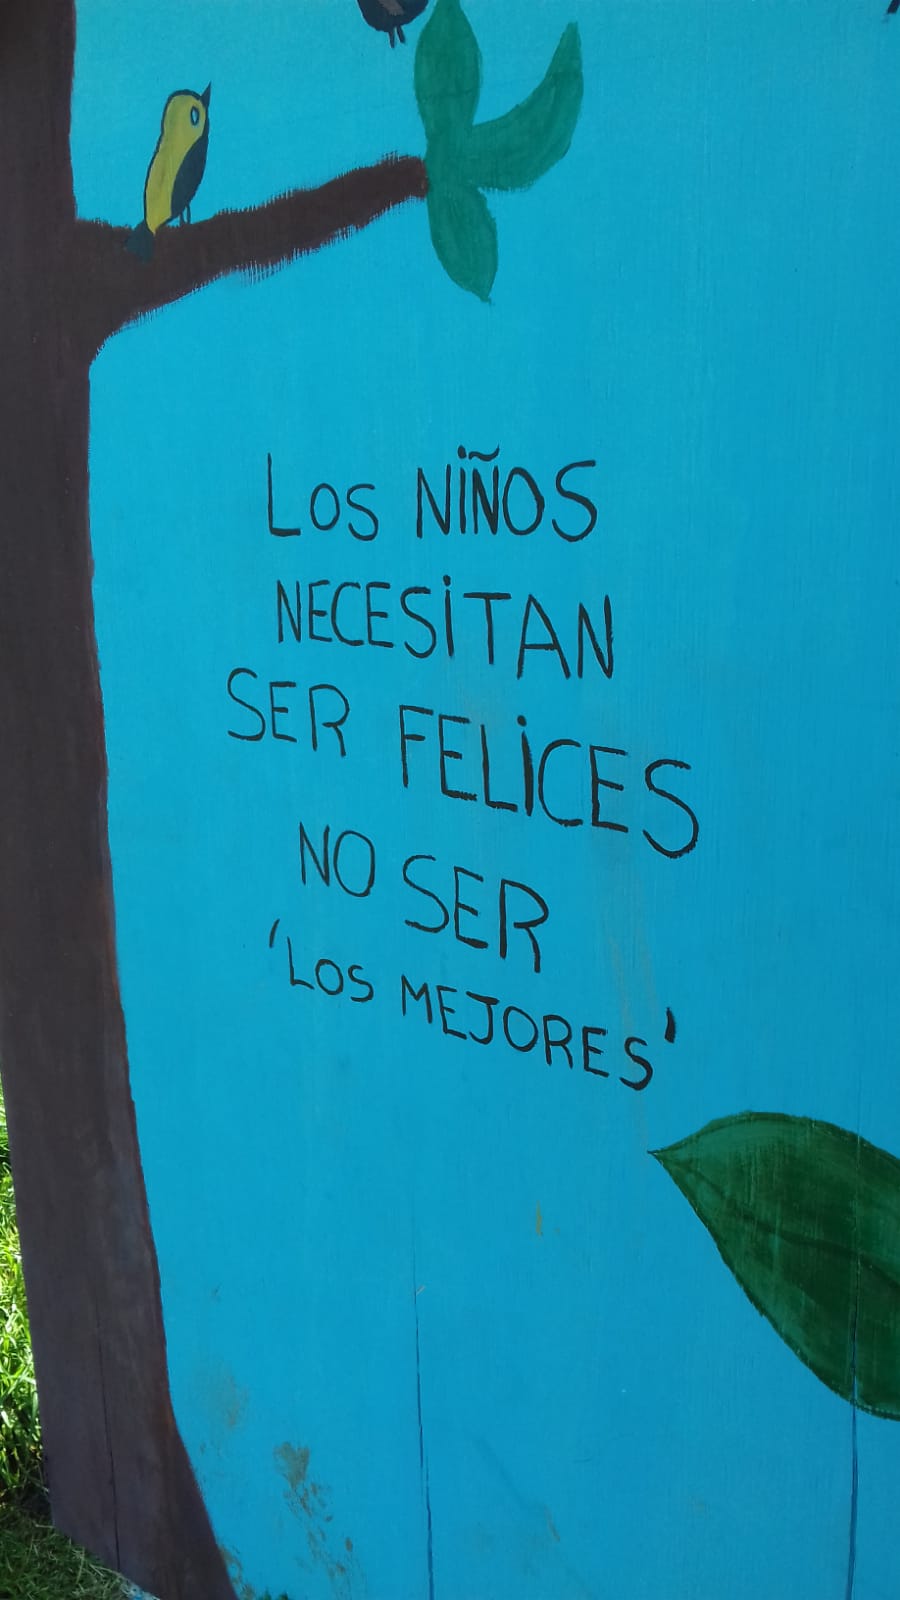 Los NiÑOS
NECESiTAN
SER FELiCES
NO SER
'LOS MEJORES'